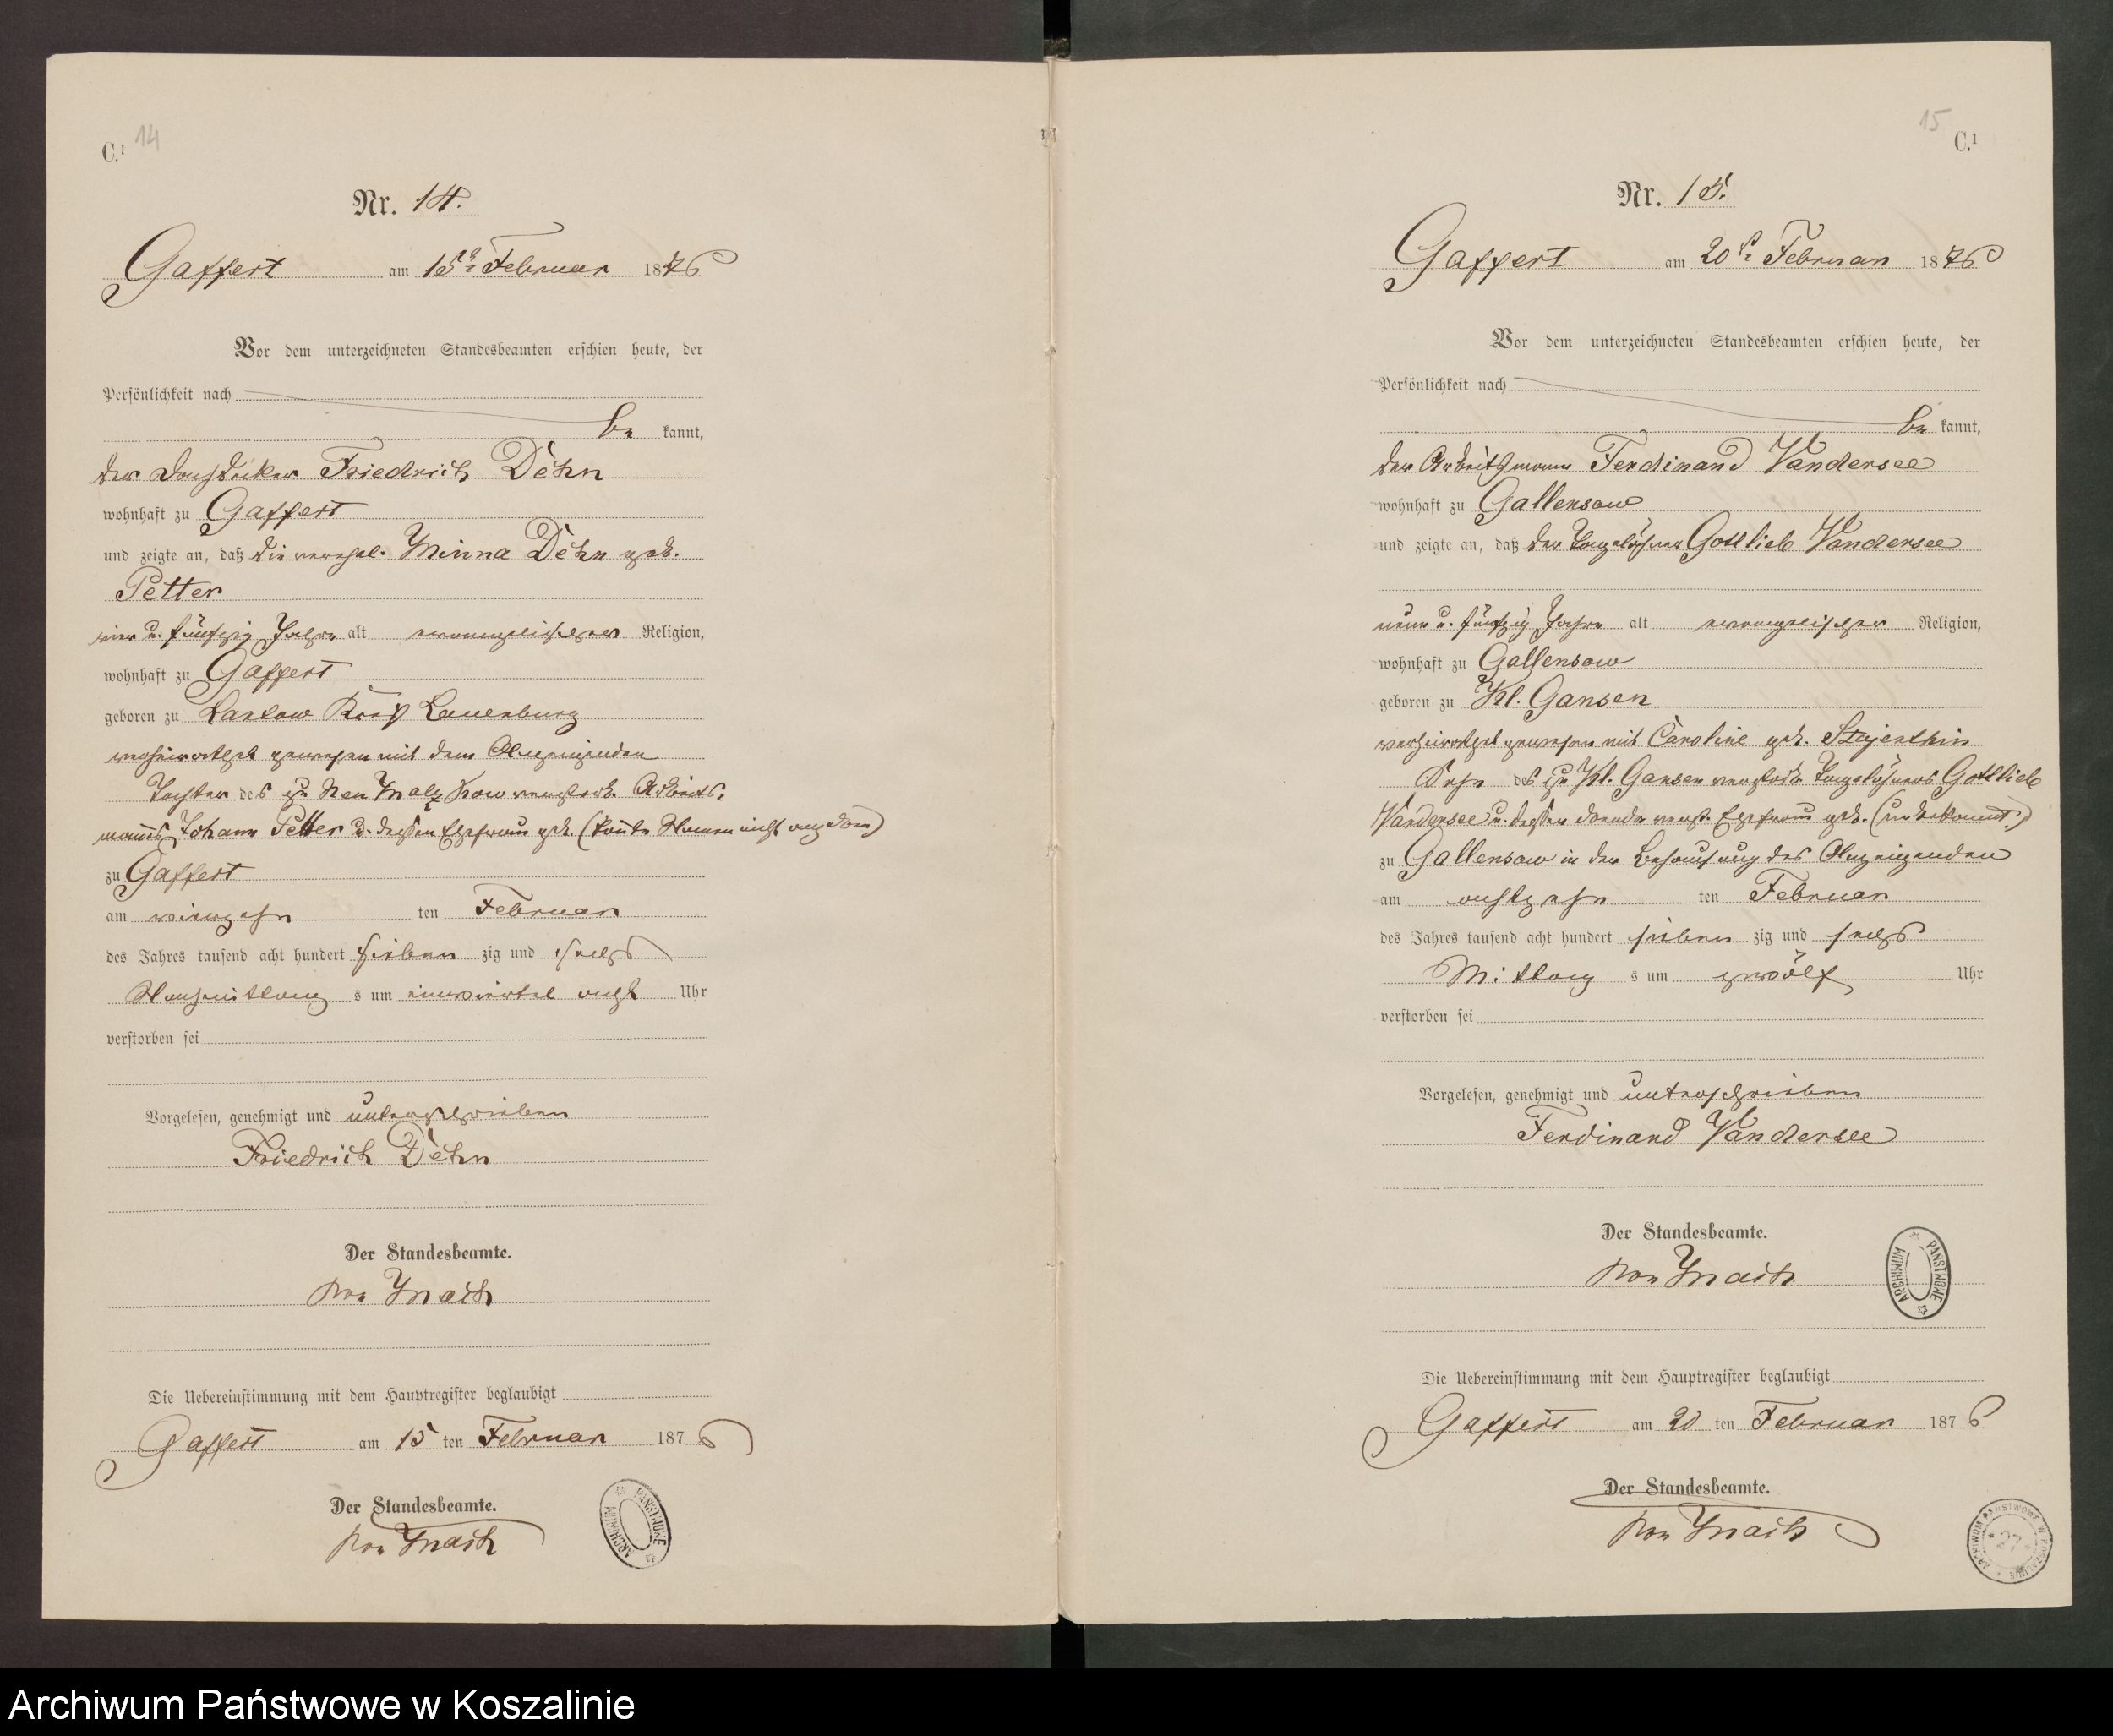 C.¹ 14
Nr. 14.
Gaffert am 15ten Februar 1876
Vor dem unterzeichneten Standesbeamten erschien heute, der
Persönlichkeit nach
be kannt,
der Dachdecker Friedrich Dehn
wohnhaft zu Gaffert
und zeigte an, daß die verehel. Minna Dehn geb.
Petter
vier u. fünfzig Jahre alt evangelischer Religion,
wohnhaft zu Gaffert
geboren zu Kreis Lauenburg
verheirathet gewesen mit dem Anzeigenden
Tochter des zu Neu Malzkow verstorb. Arbeits-
mannes Johann Petter u. dessen Ehefrau geb. (konnte Namen nicht angeben)
zu Gaffert
am vierzehn ten Februar
des Jahres tausend acht hundert sieben zig und sechs
Nachmittag s um einviertel acht Uhr
verstorben sei
Vorgelesen, genehmigt und unterschrieben
Friedrich Dehn
Der Standesbeamte.
von Mach
Die Uebereinstimmung mit dem Hauptregister beglaubigt
Gaffert am 15 ten Februar 1876
Der Standesbeamte.
von Mach
ARCHIWUM PAŃSTWOWE
15 C.¹
Nr. 15.
Gaffert am 20t. Februar 1876
Vor dem unterzeichneten Standesbeamten erschien heute, der
Persönlichkeit nach
be kannt,
der Arbeitsmann Ferdinand Vandersee
wohnhaft zu Gallensow
und zeigte an, daß der Tagelöhner Gottlieb Vandersee
neun u. fünfzig Jahre alt evangelischer Religion,
wohnhaft zu Gallensow
geboren zu Kl. Gansen
verheirathet gewesen mit Caroline geb.
Sohn des zu Kl. Gansen verstorb. Tagelöhners Gottlieb
Vandersee u. dessen verst. Ehefrau geb. (unbekannt)
zu Gallensow in der Behausung des Anzeigenden
am achtzehn ten Februar
des Jahres tausend acht hundert sieben zig und sechs
Mittag s um zwölf Uhr
verstorben sei
Vorgelesen, genehmigt und unterschrieben
Ferdinand Vandersee
Der Standesbeamte.
von Mach
ARCHIWUM PAŃSTWOWE
Die Uebereinstimmung mit dem Hauptregister beglaubigt
Gaffert am 20 ten Februar 1876
Der Standesbeamte.
von Mach
ARCHIWUM PAŃSTWOWE W KOSZALINIE
27
Archiwum Państwowe w Koszalinie